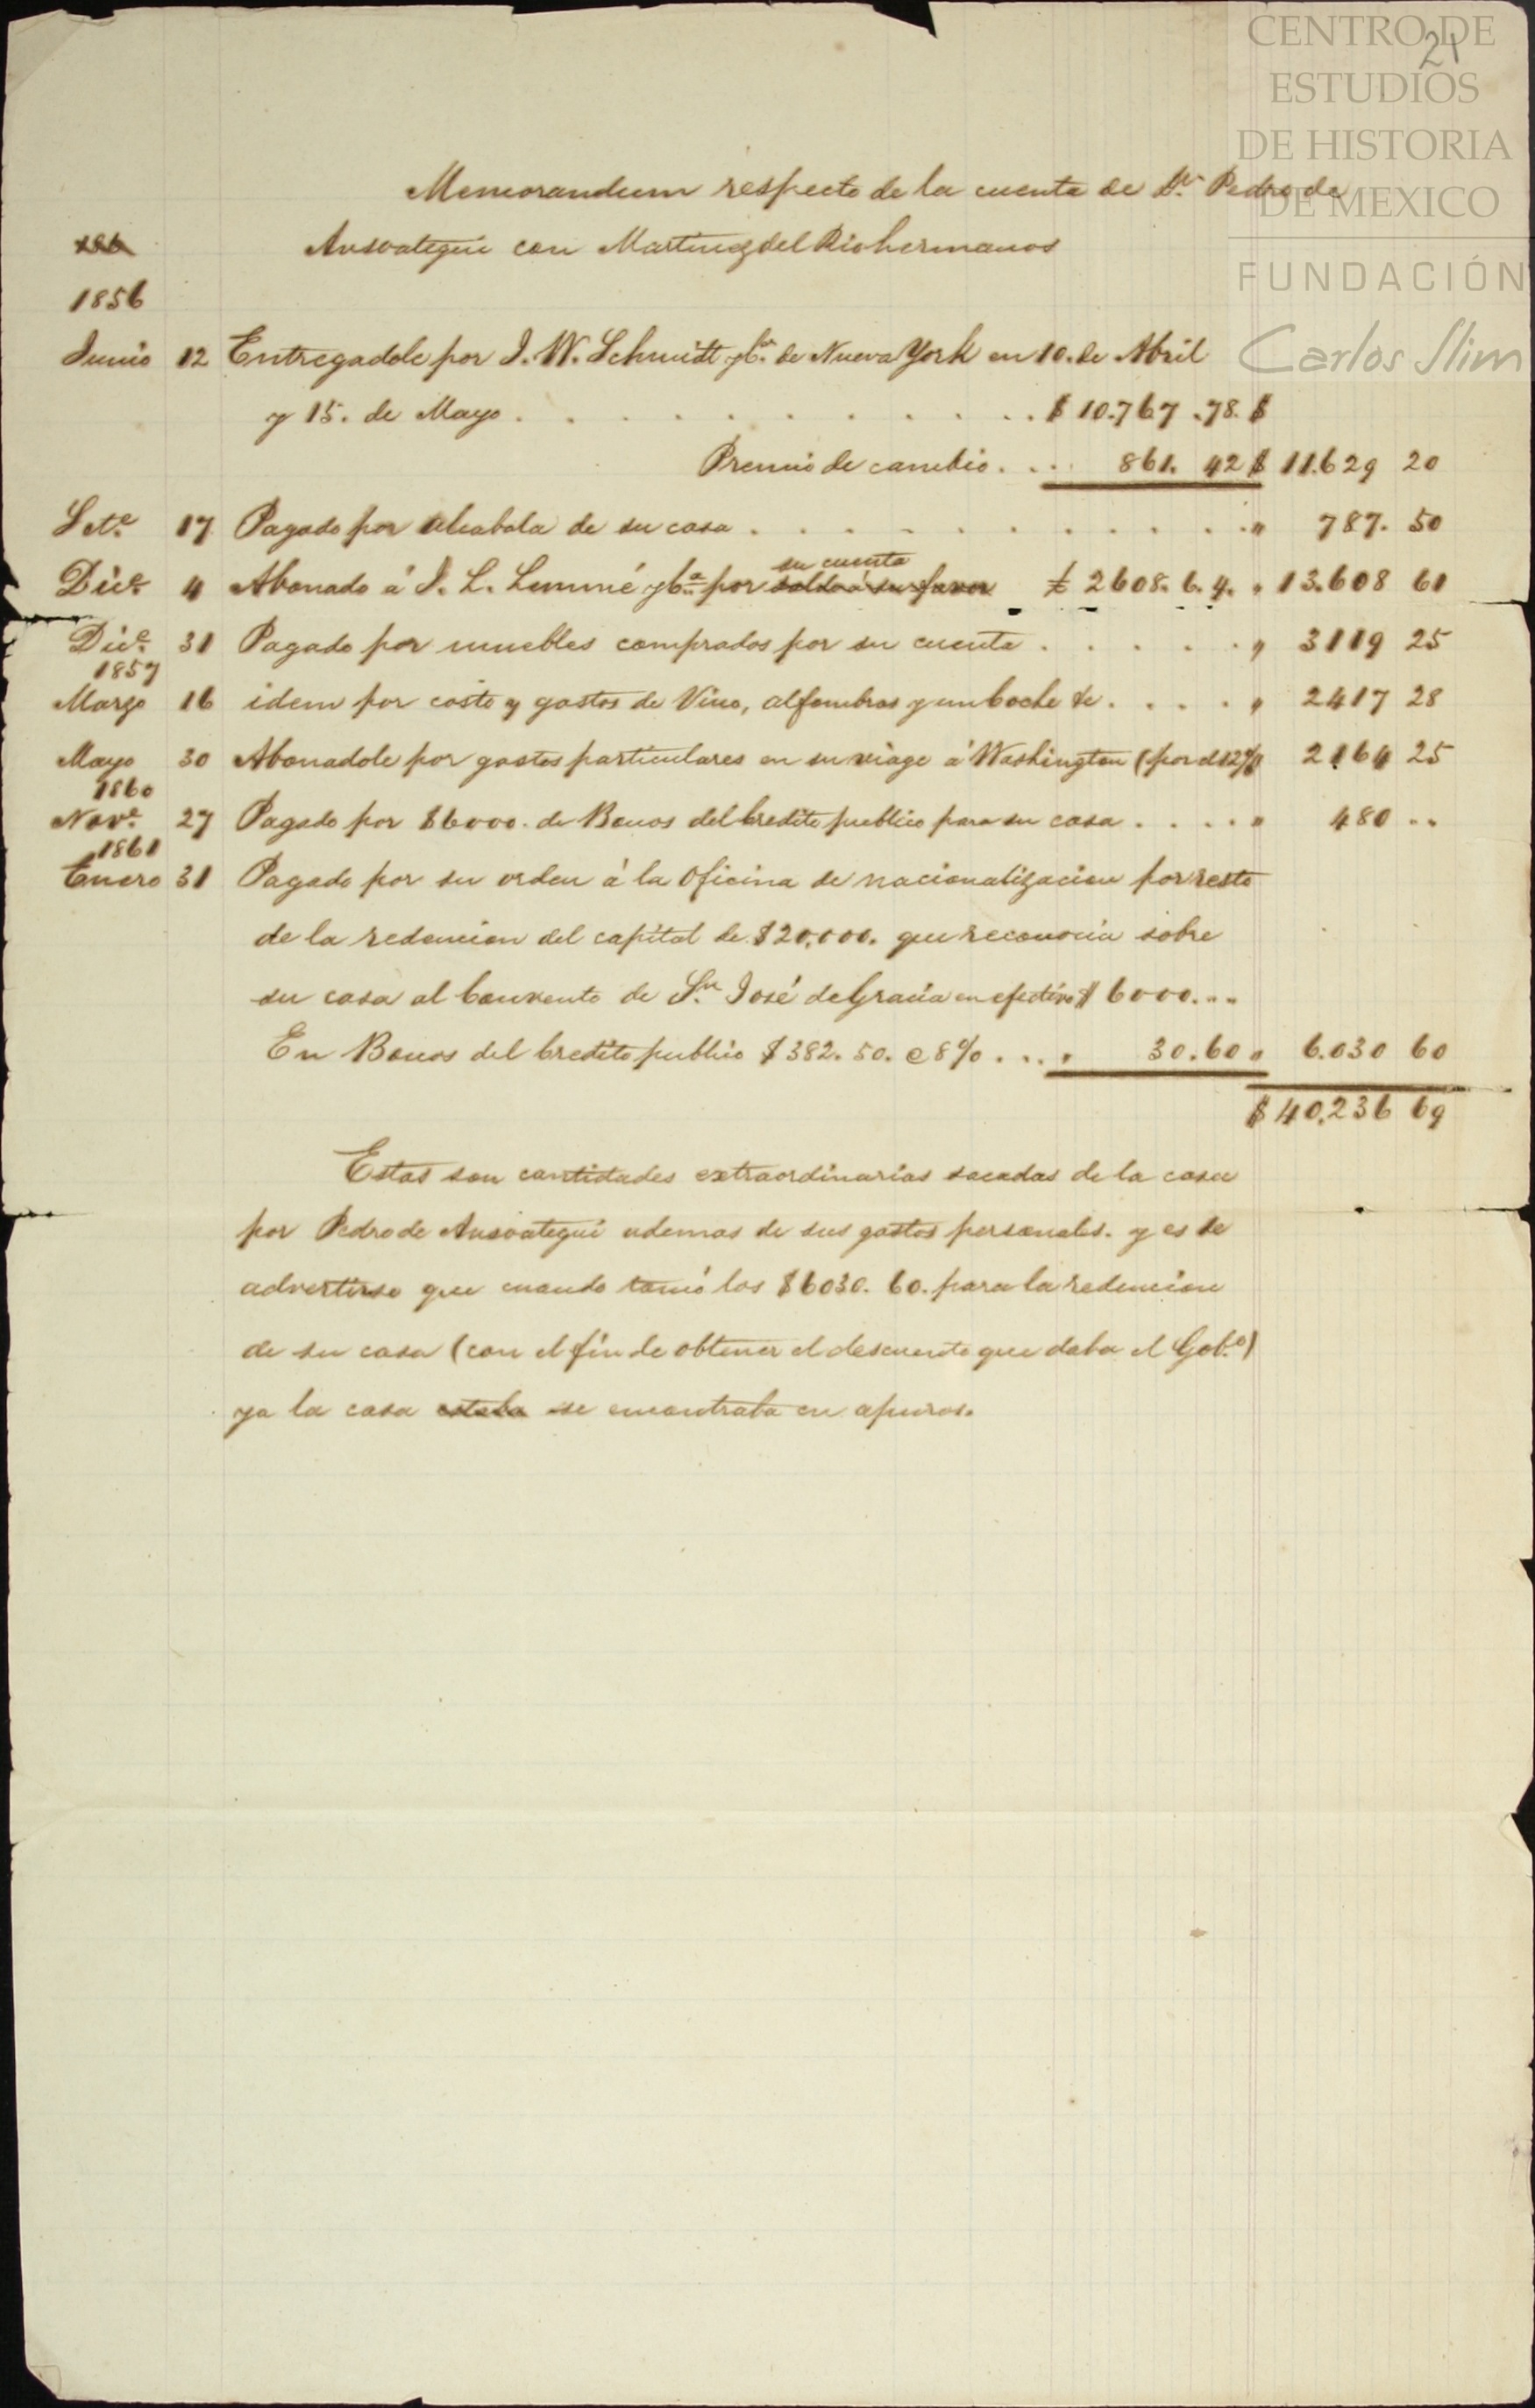 CENTRO DE
21
ESTUDIOS
DE HISTORIA
DE MEXICO
FUNDACIÓN
Carlos Slim
Memorandum respecto de la cuenta de Dn. Pedro de
Ansoategui con Martinez del Rio hermanos
186
1856
Junio 12 Entregadole por J. W. Schmidt y Ca. de Nueva York en 10. de Abril
y 15. de Mayo . . . . . . . . . . . . $ 10.767 .78. $
Premio de cambio . . . . 861. 42 $ 11.629 20
Sete. 17 Pagado por alcabala de su casa . . . . . . . . . . . . " 787. 50
su cuenta
Dice. 4 Abonado á J. L. Lemmé y Ca. por saldo á su favor £ 2608. 6. 4. " 13.608 61
Dice. 31 Pagado por muebles comprados por su cuenta . . . . . . " 3119 25
1857
Marzo 16 idem por costo y gastos de Vino, alfombras y un Coche &c. . . . . " 2417 28
Mayo 30 Abonadole por gastos particulares en su viage á Washington (por el 12%) 2164 25
1860
Nove. 27 Pagado por $6000. de Bonos del Credito publico para su casa . . . . . " 480 ..
1861
Enero 31 Pagado por su orden á la Oficina de nacionalizacion por resto
de la redencion del capital de $20,000. que reconocia sobre
su casa al Convento de Sn. José de Gracia en efectivo $ 6000. ..
En Bonos del Credito publico $ 382. 50. @ 8% . . . " 30.60 " 6.030 60
$ 40,236 69
Estas son cantidades extraordinarias sacadas de la casa
por Pedro de Ansoategui ademas de sus gastos personales. y es de
advertirse que cuando tomó los $6030. 60. para la redencion
de su casa (con el fin de obtener el descuento que daba el Gobo.)
ya la casa estaba se encontraba en apuros.